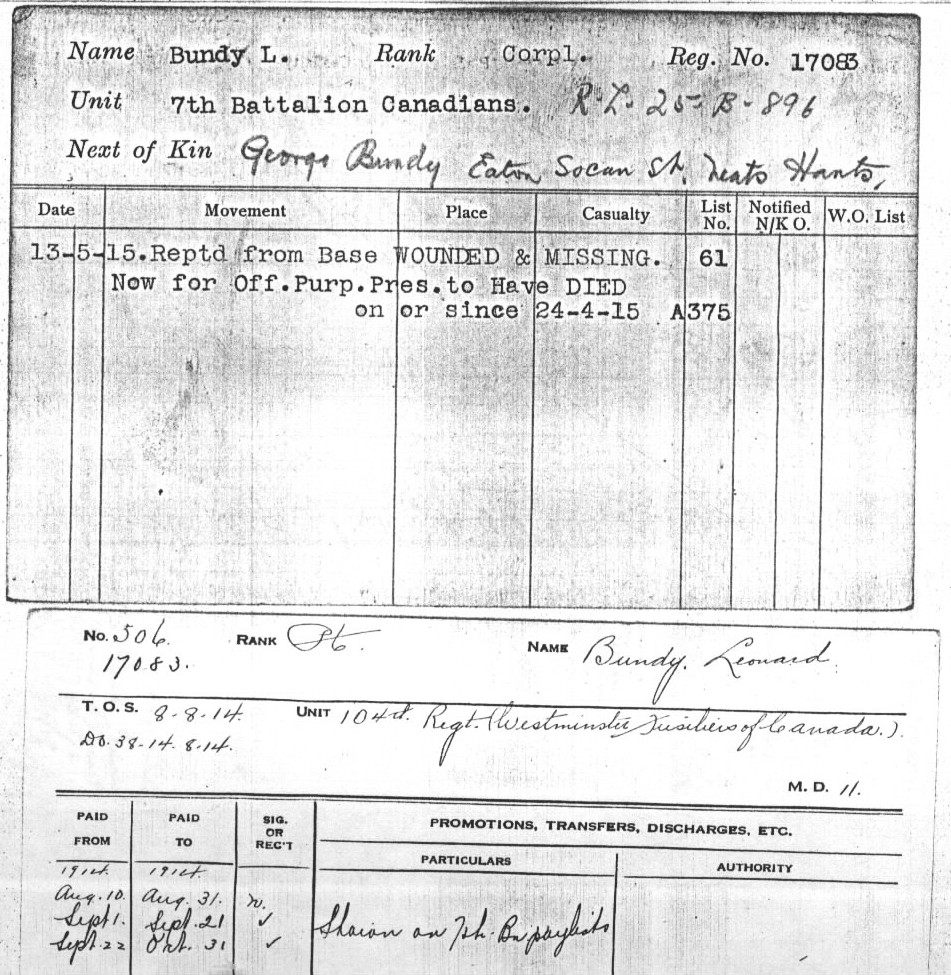 Name Bundy L. Rank Corpl. Reg. No. 17083
Unit 7th Battalion Canadians. R-L- 25-B-896
Next of Kin George Bundy Eaton Socan St, Hants,
Date Movement Place Casualty List No. Notified N/K O. W.O. List
13-5-15. Reptd from Base WOUNDED & MISSING. 61
Now for Off.Purp.Pres.to Have DIED
on or since 24-4-15 A375
No. 506. RANK Pte NAME Bundy. Leonard.
17083.
T. O. S. 8-8-14. UNIT 104th Regt. (Westminster Fusiliers of Canada.).
DO. 38-14. 8-14.
M. D. 11.
PAID FROM PAID TO SIG. OR REC'T PROMOTIONS, TRANSFERS, DISCHARGES, ETC.
PARTICULARS AUTHORITY
1914 1914
Aug. 10. Aug. 31. n.
Sept 1. Sept. 21 ✓ Shown on 7th. Bn paylists
Sept. 22 Oct. 31 ✓